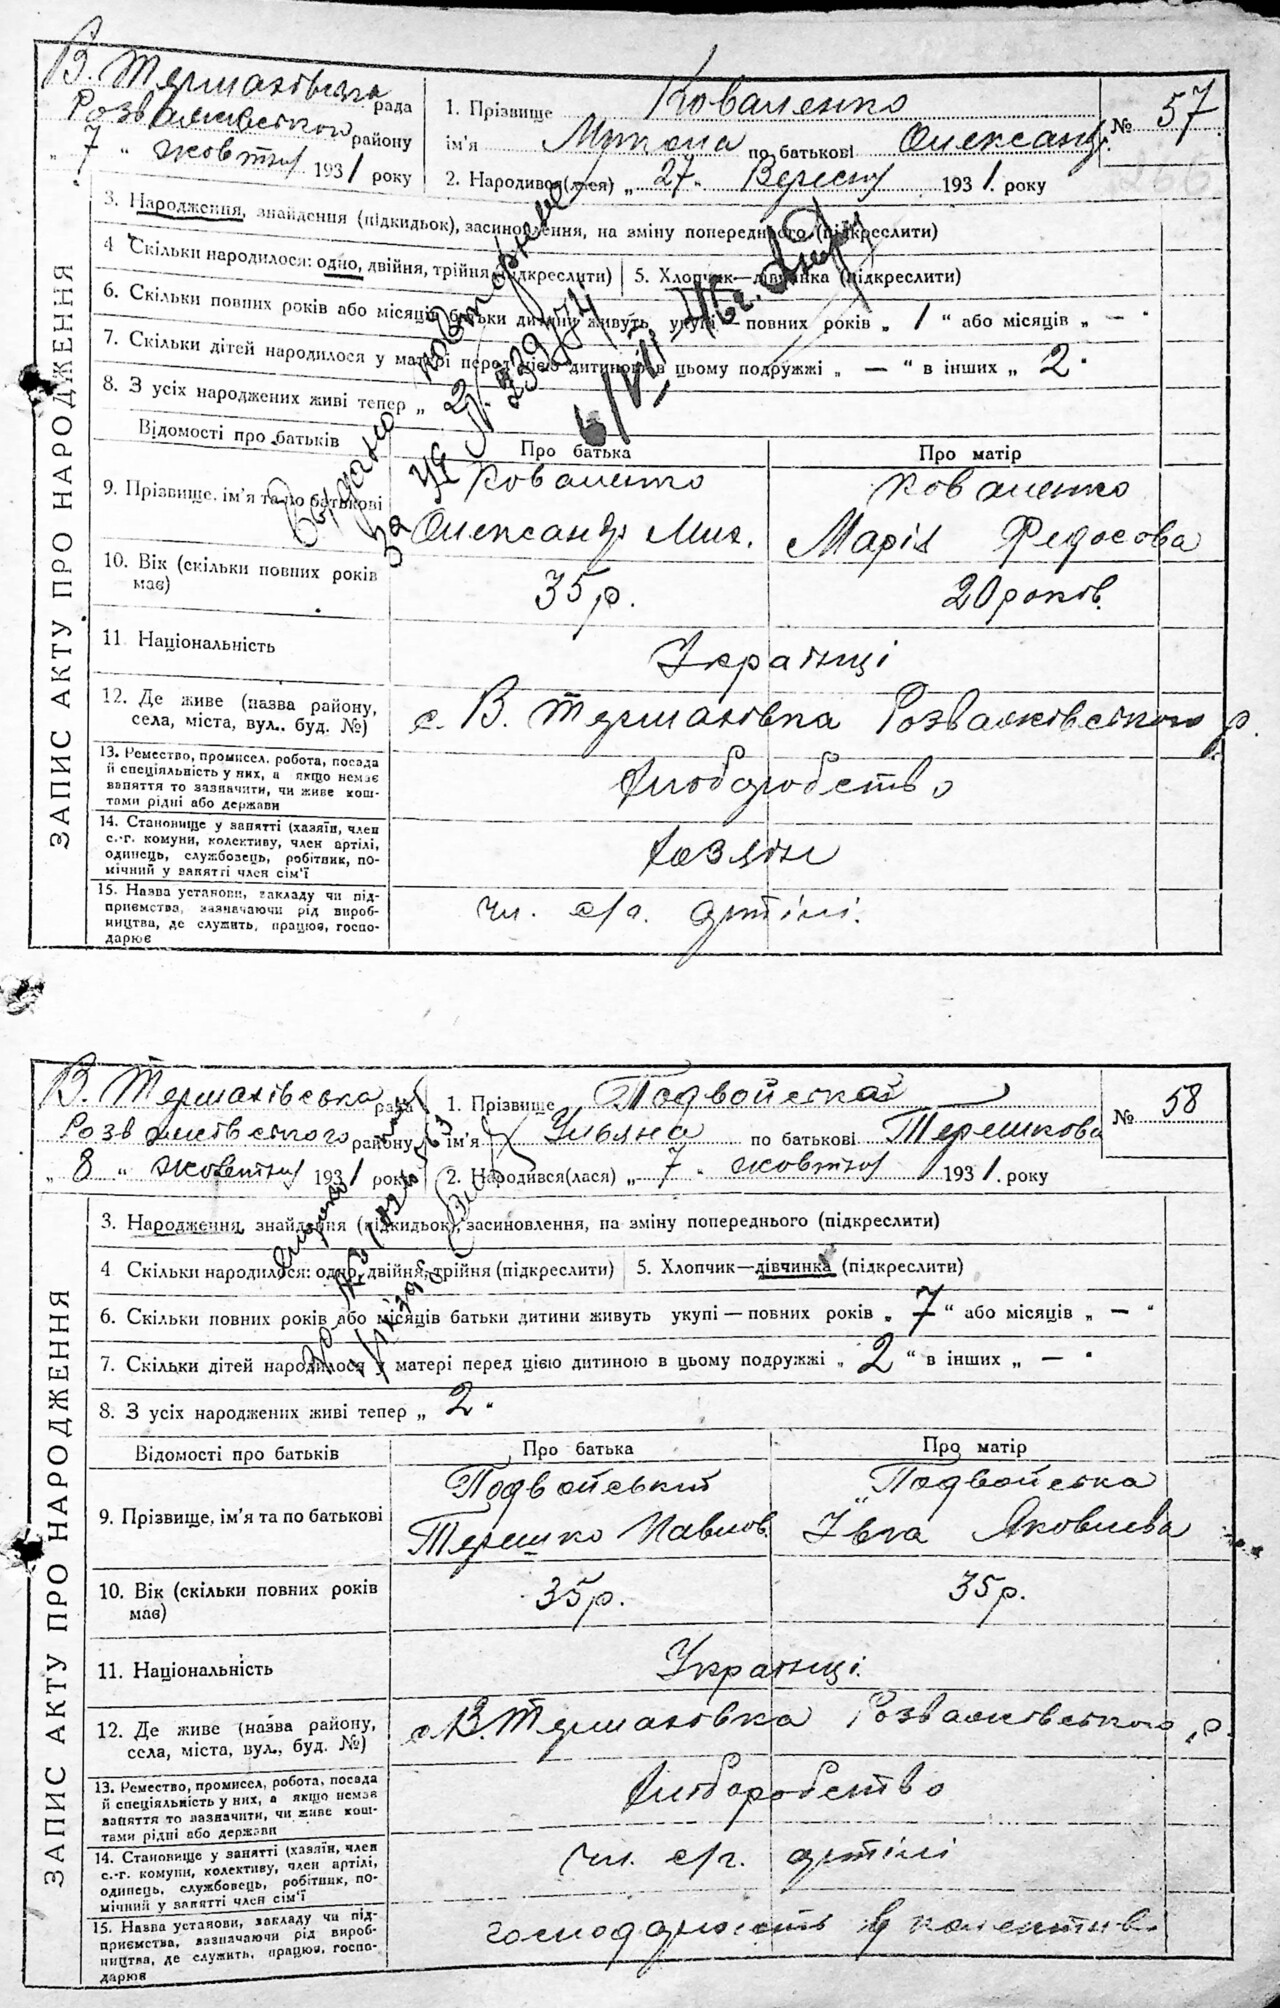 В. Термахівська рада
Розважівського району
„ 7 “ жовтня 1931 року
1. Прізвище Коваленко
№ 57
ім'я Микола по батькові Олександр.
2. Народився(лася) „ 27 “ Вересня 1931. року
3. Народження, знайдення (підкидьок), засиновлення, на зміну попереднього (підкреслити)
4 Скільки народилося: одно, двійня, трійня (підкреслити)
5. Хлопчик—дівчинка (підкреслити)
6. Скільки повних років або місяців батьки дитини живуть укупі — повних років „ 1 “ або місяців „ — “
7. Скільки дітей народилося у матері перед цією дитиною в цьому подружжі „ — “ в інших „ 2 “
8. З усіх народжених живі тепер „ 2 “
Відомості про батьків
Про батька
Про матір
9. Прізвище, ім'я та по батькові
Коваленко
Олександр Мих.
Коваленко
Марія Федосова
10. Вік (скільки повних років має)
35 р.
20 років.
11 Національність
Українці
12. Де живе (назва району,
села, міста, вул., буд. №)
с. В. Термахівка Розважівського р.
13. Ремество, промисел, робота, посада
й спеціяльність у них, а якщо немає
заняття то зазначити, чи живе кош-
тами рідні або держави
Хлібаробство
14. Становище у занятті (хазяїн, член
с.-г. комуни, колективу, член артілі,
одинець, службовець, робітник, по-
мічний у занятті член сім'ї
Хазяін
15. Назва установи, закладу чи під-
приємства, зазначаючи рід вироб-
ництва, де служить, працює, госпо-
дарює
чл. с/г. артілі.
ЗАПИС АКТУ ПРО НАРОДЖЕННЯ
Выдано повторное
за № 239774
В. Термахівська рада
Розважівського району
„ 8 “ жовтня 1931 року
1. Прізвище Подвойська
№ 58
ім'я Ульяна по батькові Терешкова
2. Народився(лася) „ 7 “ жовтня 1931. року
3. Народження, знайдення (підкидьок), засиновлення, на зміну попереднього (підкреслити)
4 Скільки народилося: одно, двійня, трійня (підкреслити)
5. Хлопчик—дівчинка (підкреслити)
6. Скільки повних років або місяців батьки дитини живуть укупі — повних років „ 7 “ або місяців „ — “
7. Скільки дітей народилося у матері перед цією дитиною в цьому подружжі „ 2 “ в інших „ — “
8. З усіх народжених живі тепер „ 2 “
Відомості про батьків
Про батька
Про матір
9. Прізвище, ім'я та по батькові
Подвойський
Терешко Павлов.
Подвойська
Ївга Яковлева
10. Вік (скільки повних років має)
35 р.
35 р.
11. Національність
Українці.
12. Де живе (назва району,
села, міста, вул., буд. №)
с. В. Термахівка Розважівського р.
13. Ремество, промисел, робота, посада
й спеціяльність у них, а якщо немає
заняття то зазначити, чи живе кош-
тами рідні або держави
Хлібаробство
14. Становище у занятті (хазяїн, член
с.-г. комуни, колективу, член артілі,
одинець, службовець, робітник, по-
мічний у занятті член сім'ї
чл. с/г. артілі
15. Назва установи, закладу чи під-
приємства, зазначаючи рід вироб-
ництва, де служить, працює, госпо-
дарює
господарюють в колективі
ЗАПИС АКТУ ПРО НАРОДЖЕННЯ